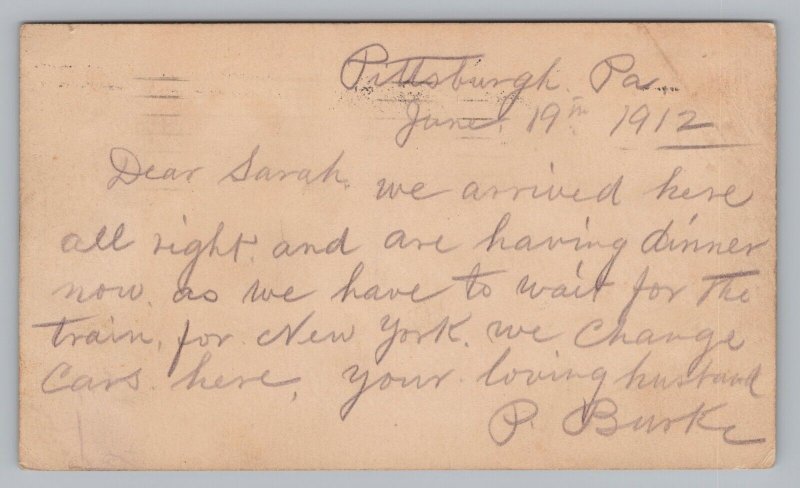 Pittsburgh. Pa.
June. 19th 1912
Dear Sarah. we arrived here
all right. and are having dinner
now. as we have to wait for the
train, for New York. we change
Cars. here, your loving husband
P. Burke